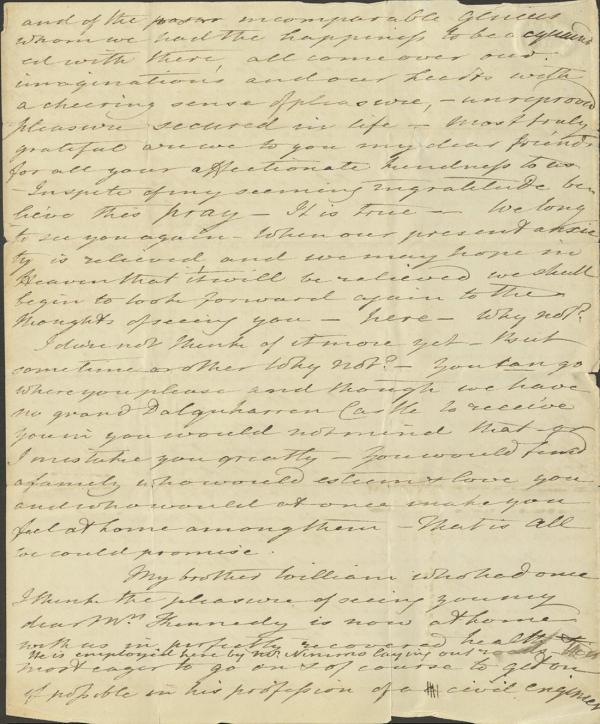 and of the incomparable Genius
whom we had the happiness to be acquaint
ed with there, all come over our
imaginations and our hearts with
a cheering sense of pleasure, – unreproved
pleasure secured in life – most truly
grateful are we to you my dear friends
for all your affectionate kindness to us
– Inspite of my seeming ingratitude be
lieve this pray – It is true – We long
to see you again – When our present anxie
ty is relieved and we may hope in
Heaven that it will be relieved we shall
begin to look forward again to the
thoughts of seeing you – here – Why not?
I dare not think of it more yet – But
sometime or other Why Not? – You can go
where you please and though we have
no grand Dalquharren Castle to receive
you in you would not mind that or
I mistake you greatly – You would find
a family who would esteem & love you
and who would at once make you
feel at home among them – That is all
we could promise.
My brother William who had once
I think the pleasure of seeing you my
dear Mrs Kennedy is now at home
with us in perfectly recovered health
He is employed here by Mr. Nimmo laying out roads
most eager to go on & of course to get on
if possible in his profession of a civil engineer